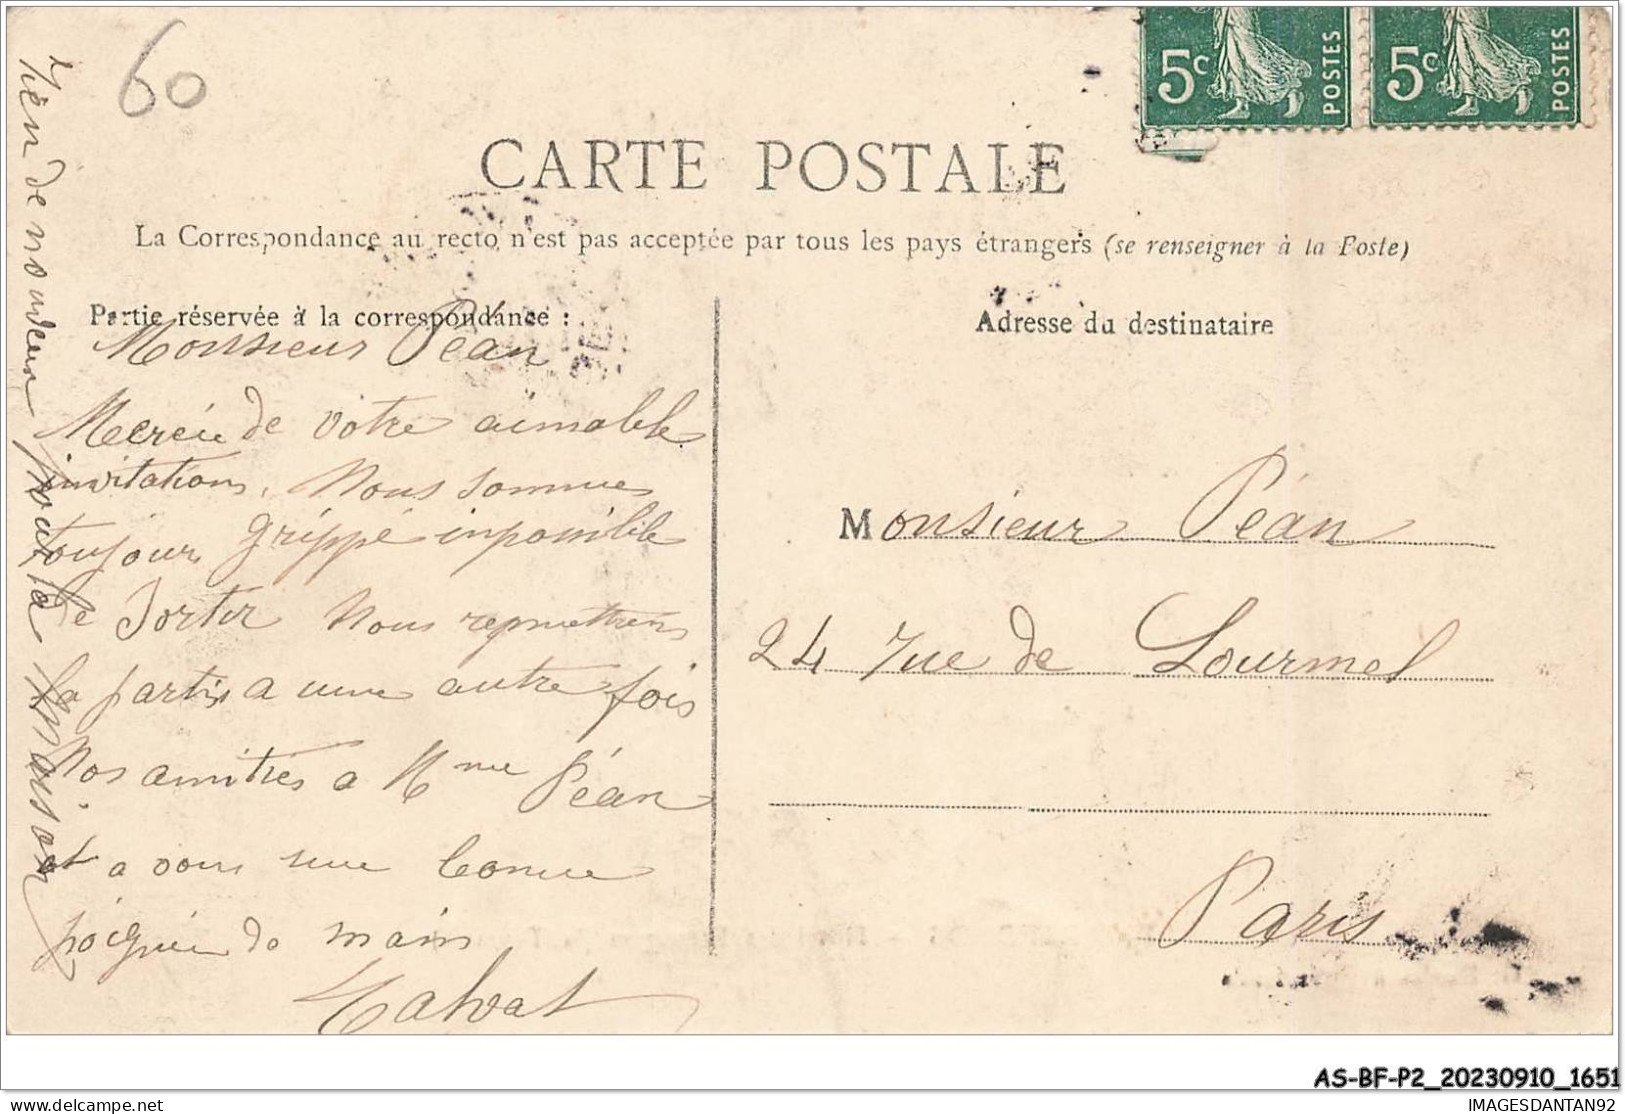 60
5c POSTES 5c POSTES
CARTE POSTALE
La Correspondance au recto n'est pas acceptée par tous les pays étrangers (se renseigner à la Poste)
Partie réservée à la correspondance :
Monsieur Péan
de votre aimable
invitation, Nous sommes
toujours grippé impossible
de Sortir Nous remettrens
la partis a une autre fois
Nos amities a Mme Péan
et a vous une bonne
de main
Calvat
de nouveau pour la Maison
Adresse du destinataire
Monsieur Péan
24 rue de Lourmel
Paris
AS-BF-P2_20230910_1651
delcampe.net
IMAGESDANTAN92